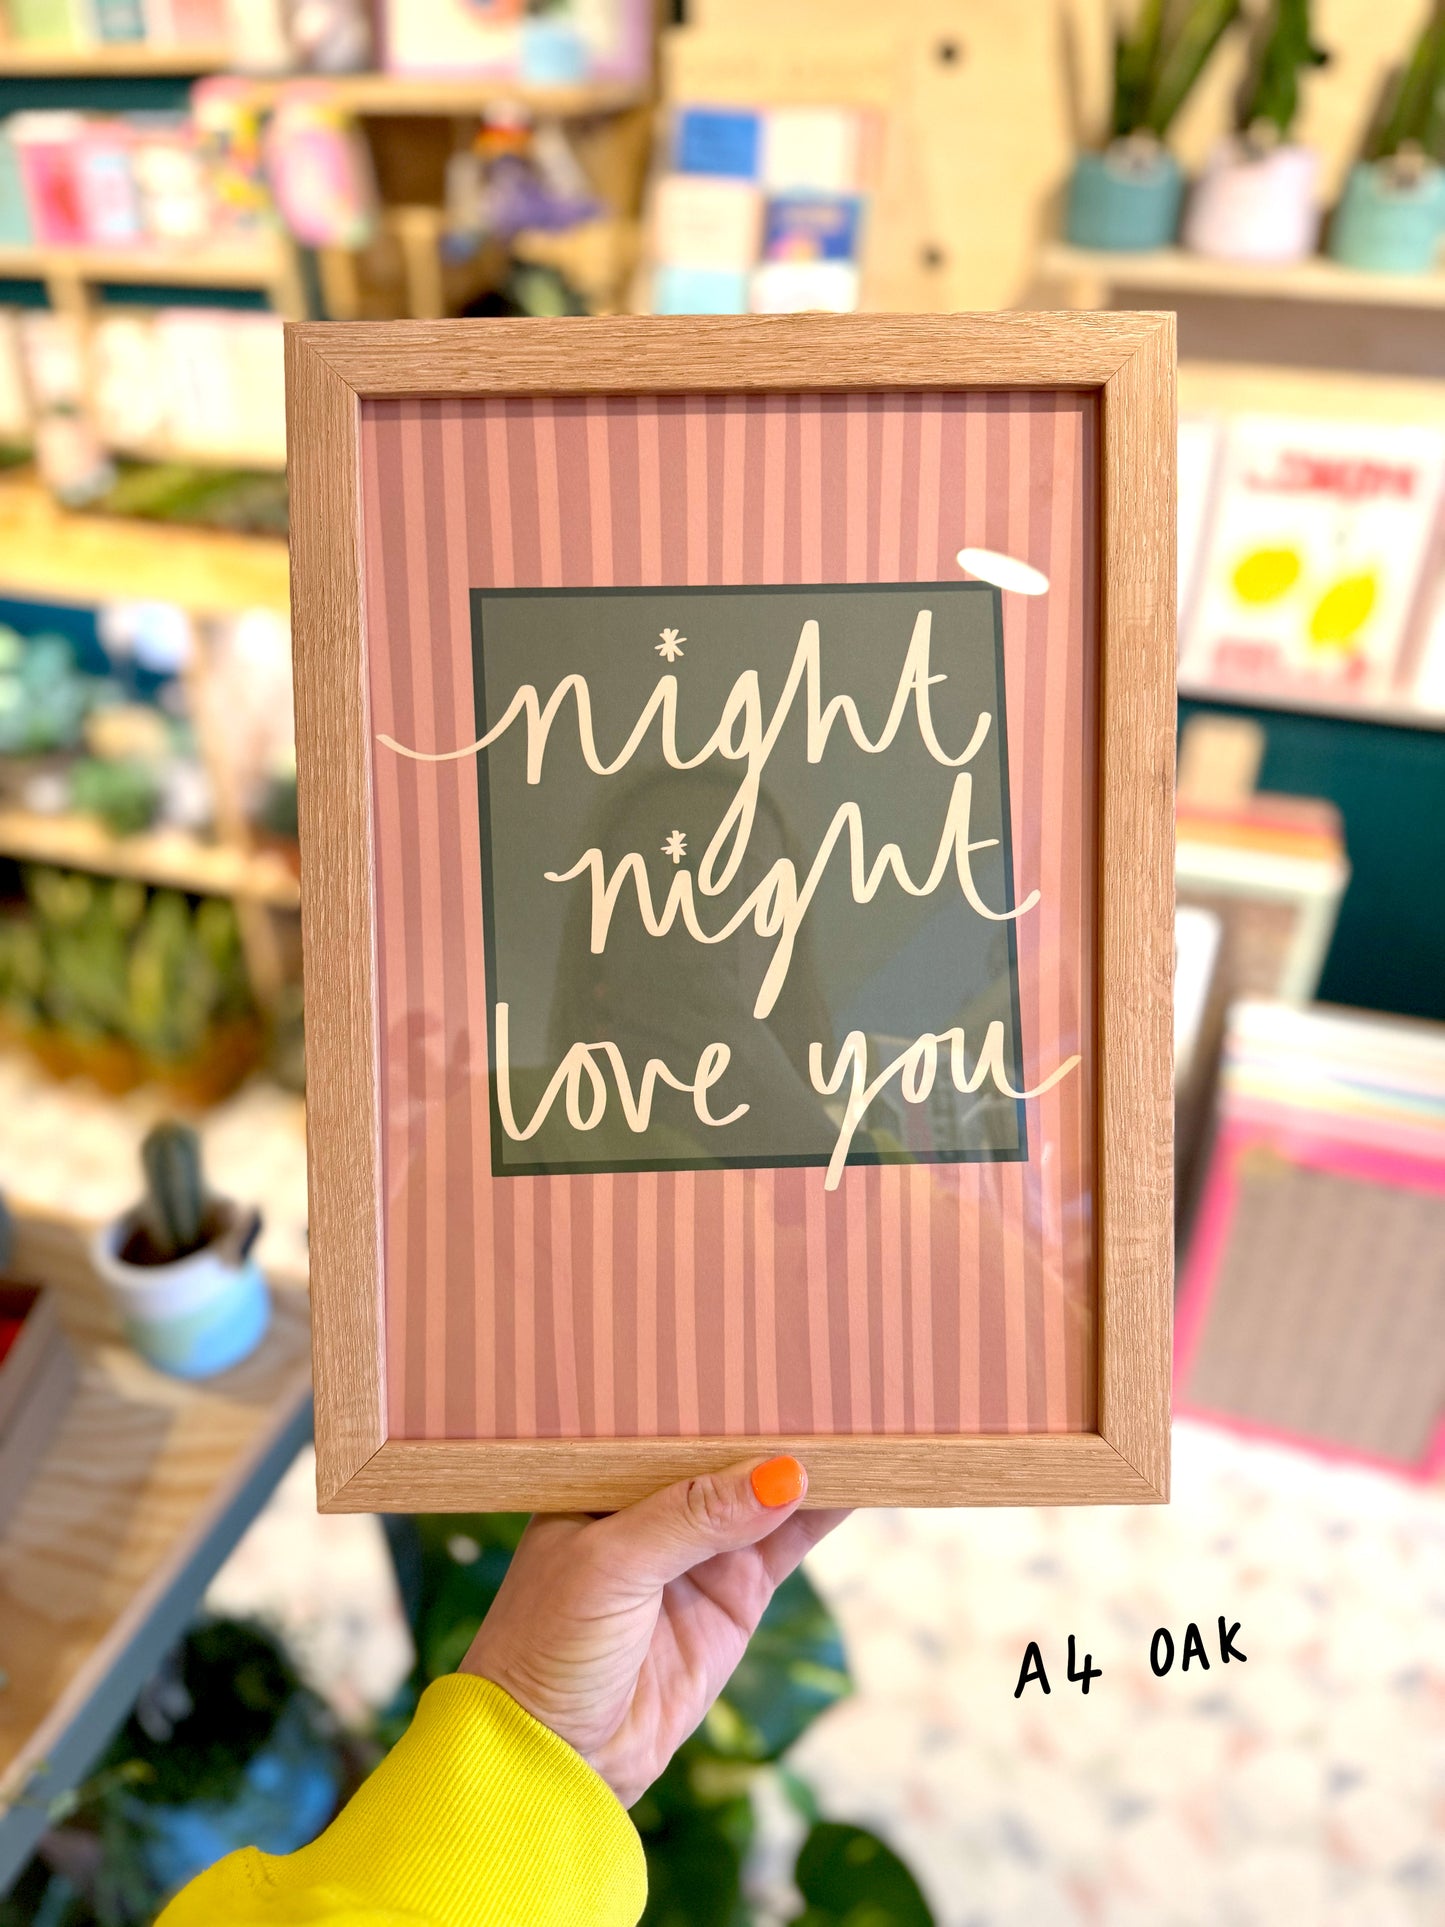 night
night
love you
A4 OAK